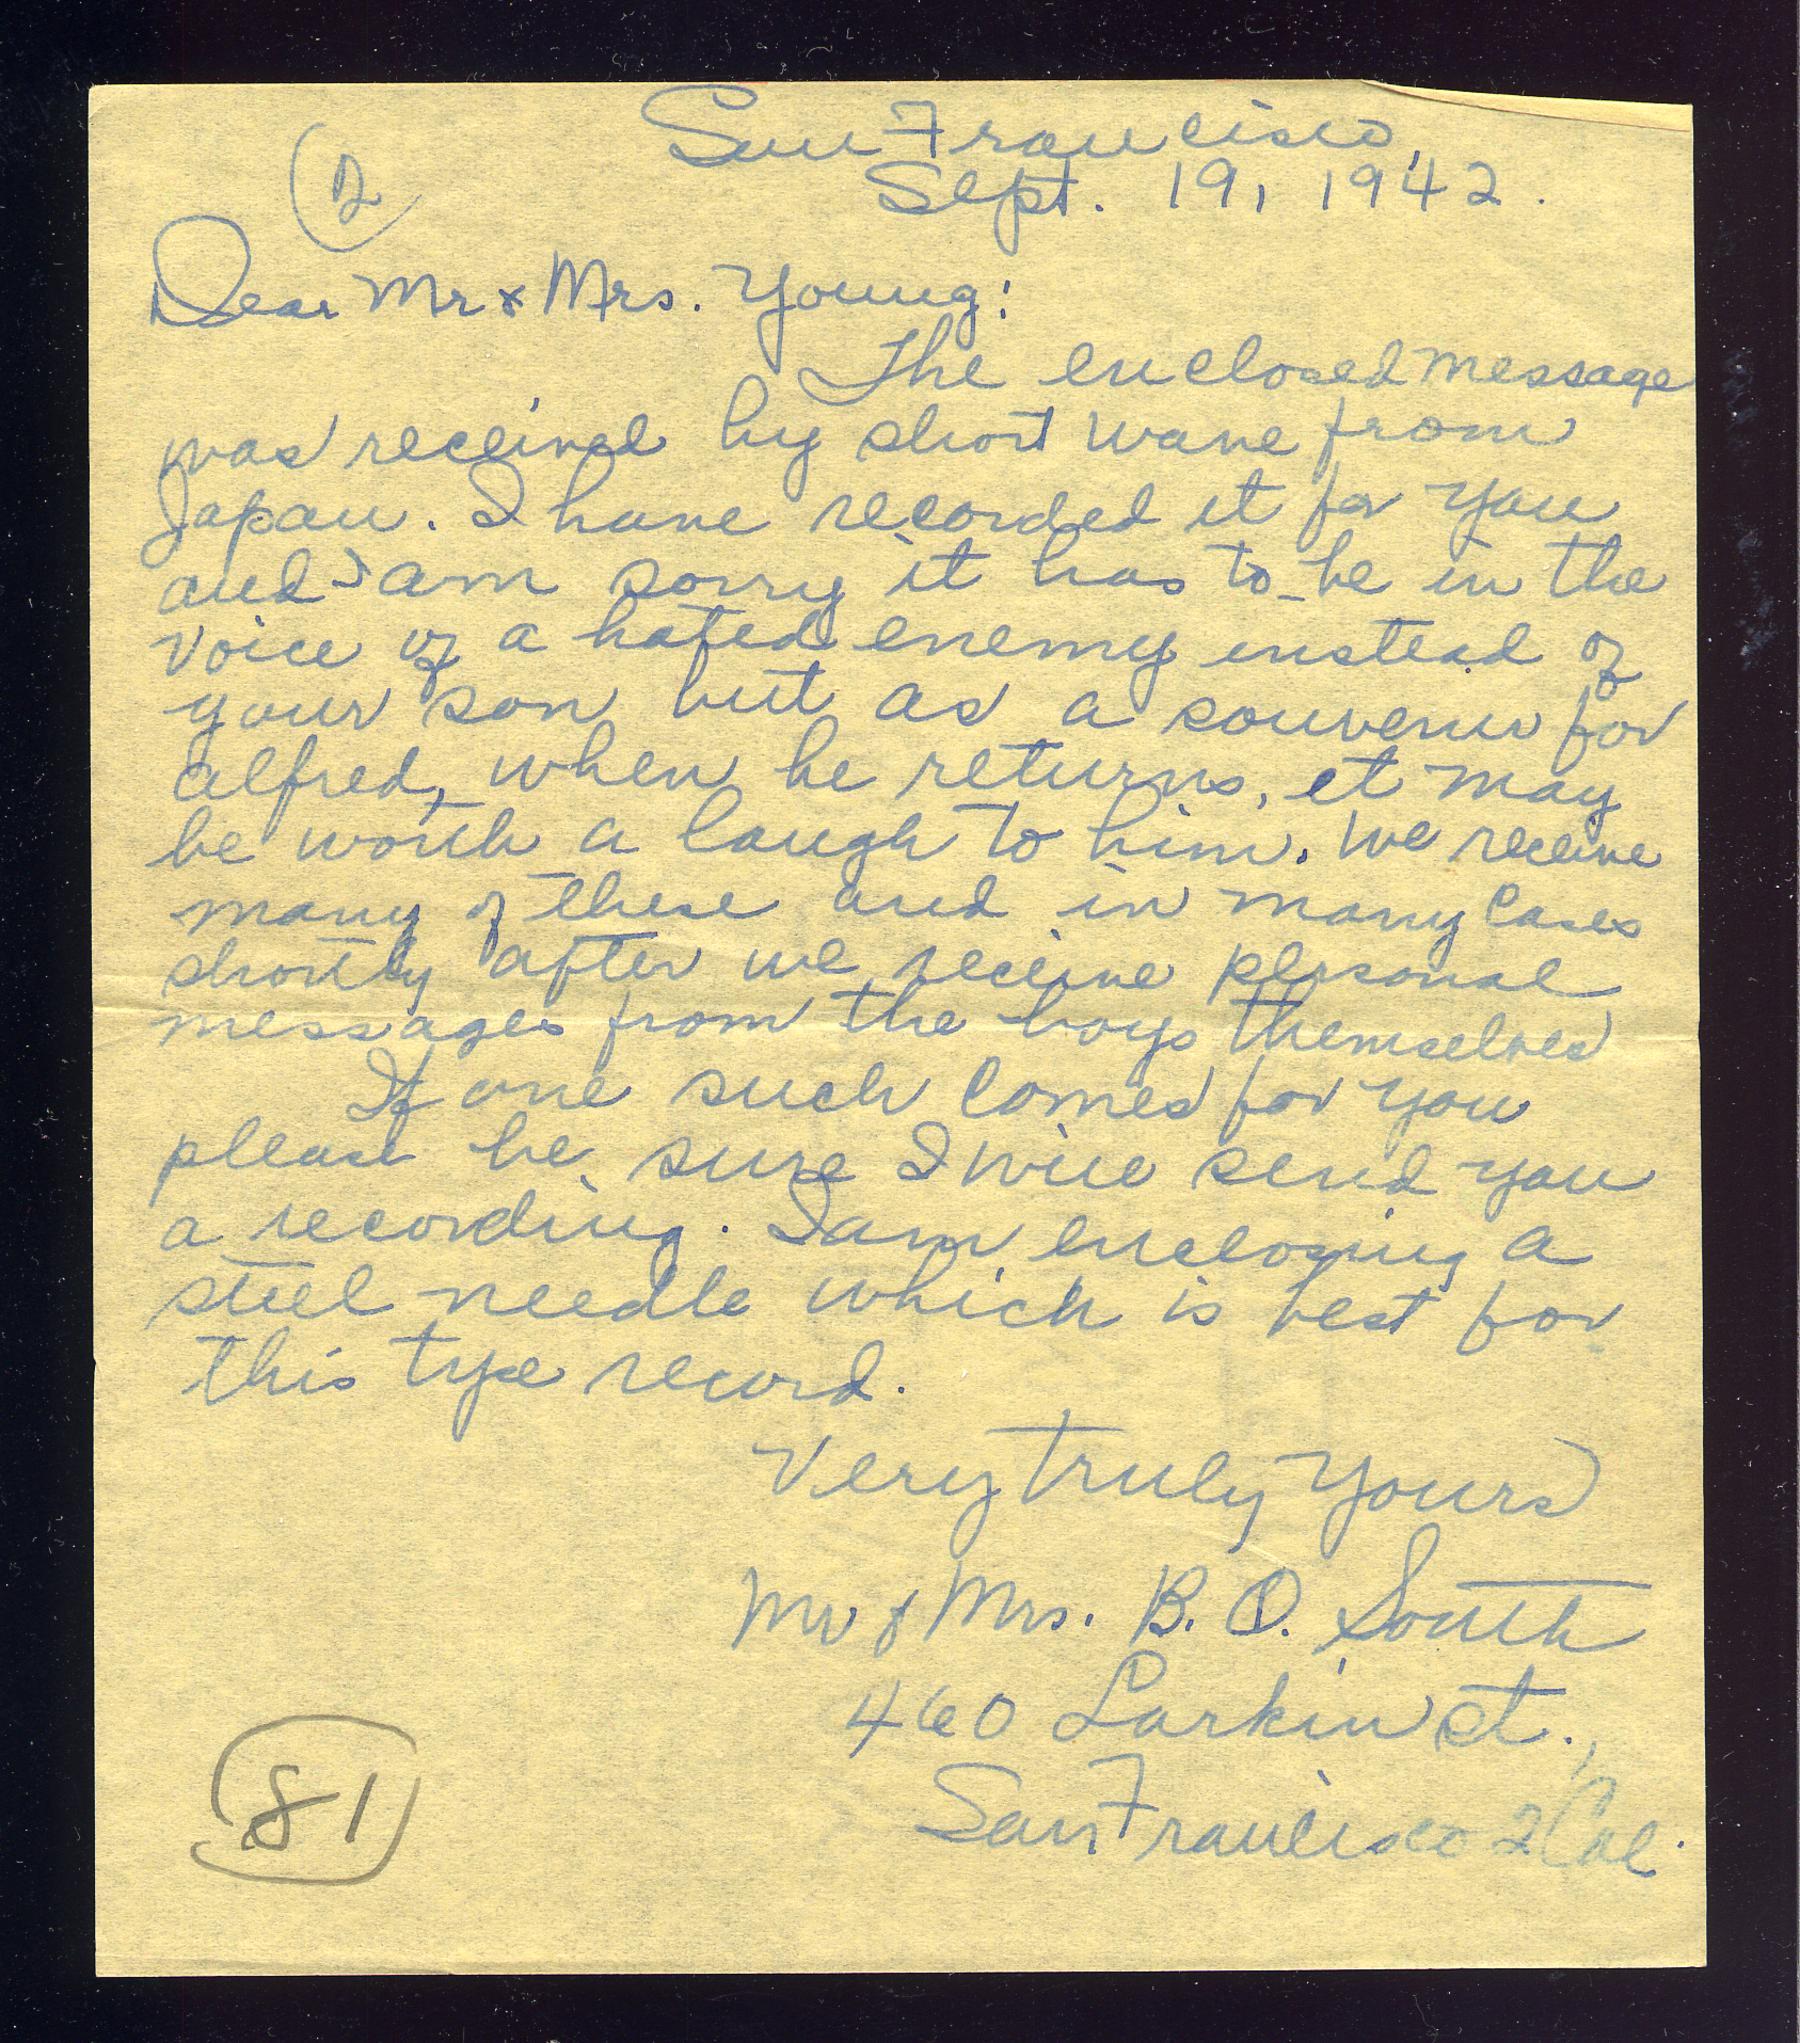 San Francisco,
Sept. 19, 1942.
2
Dear Mr & Mrs. Young:
The enclosed message
was received by short wave from
Japan. I have recorded it for you
and I am sorry it has to be in the
voice of a hated enemy instead of
your son but as a souvenir for
Alfred, when he returns, it may
be worth a laugh to him. We receive
many of these and in many cases
shortly after we receive personal
messages from the boys themselves
If one such comes for you
please be sure I will send you
a recording. I am enclosing a
steel needle which is best for
this type record.
Very truly yours
Mr & Mrs. B. O. South
460 Larkin St.,
San Francisco 2 Cal.
81